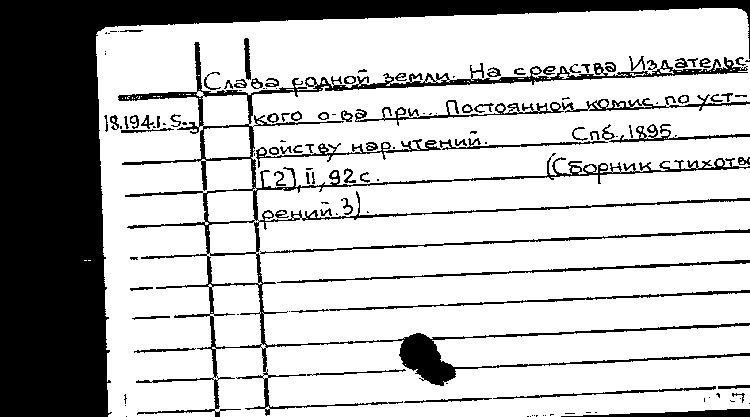 Слава родной земли. На средства Издательс-
18.194.1.5-3 кого о-ва при... Постоянной комис. по уст-
ройству нар. чтений. Спб., 1895.
[2], II, 92 с. (Сборник стихотво
рений. 3).